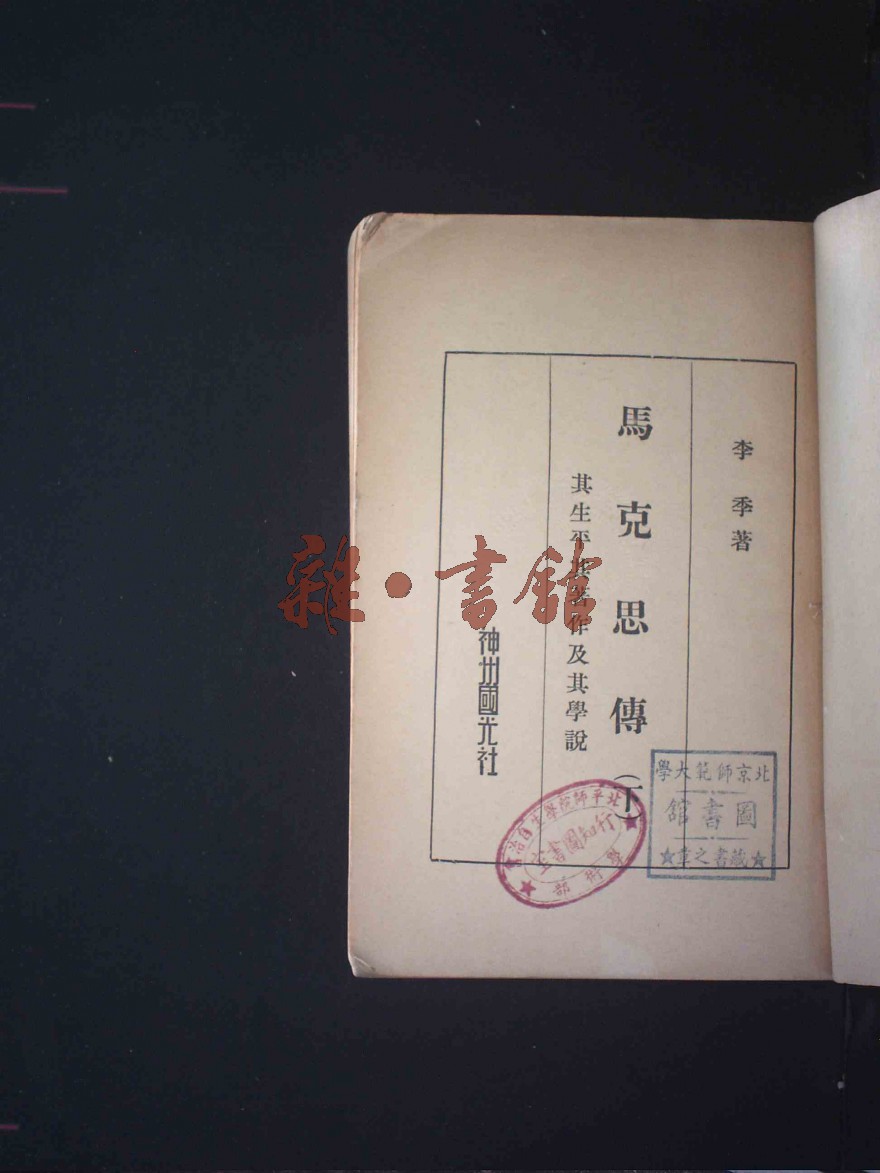 李季著
馬克思傳(下)
其生平其著作及其學說
神州國光社
雜·書館
北京師範大學
圖書館
★藏書之章★
北平師院學生自治會
行知圖書室
學術部